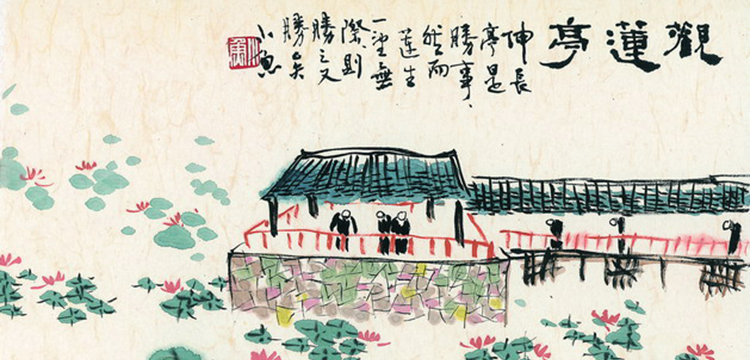 觀蓮亭
伸長
亭是
勝事、
然而
蓮生
一望無
際則
勝之又
勝矣
小魚